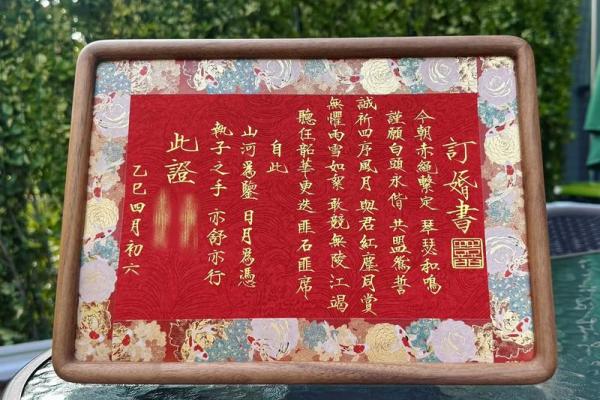 訂婚書
今朝赤繩繫定 琴瑟和鳴
謹願白頭永偕 共盟鴛誓
誠祈四序風月 與君紅塵同賞
無懼雨雪如 敢競無陵江竭
聽任韶華更迭 匪石匪席
自此
山河爲鑒 日月爲憑
執子之手 亦舒亦行
此證
乙巳四月初六